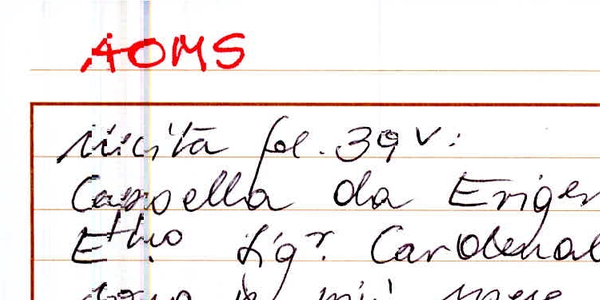 AOMS
Uscita fol. 39v:
Cappella da Eriger
E.mo Sigr. Cardenal